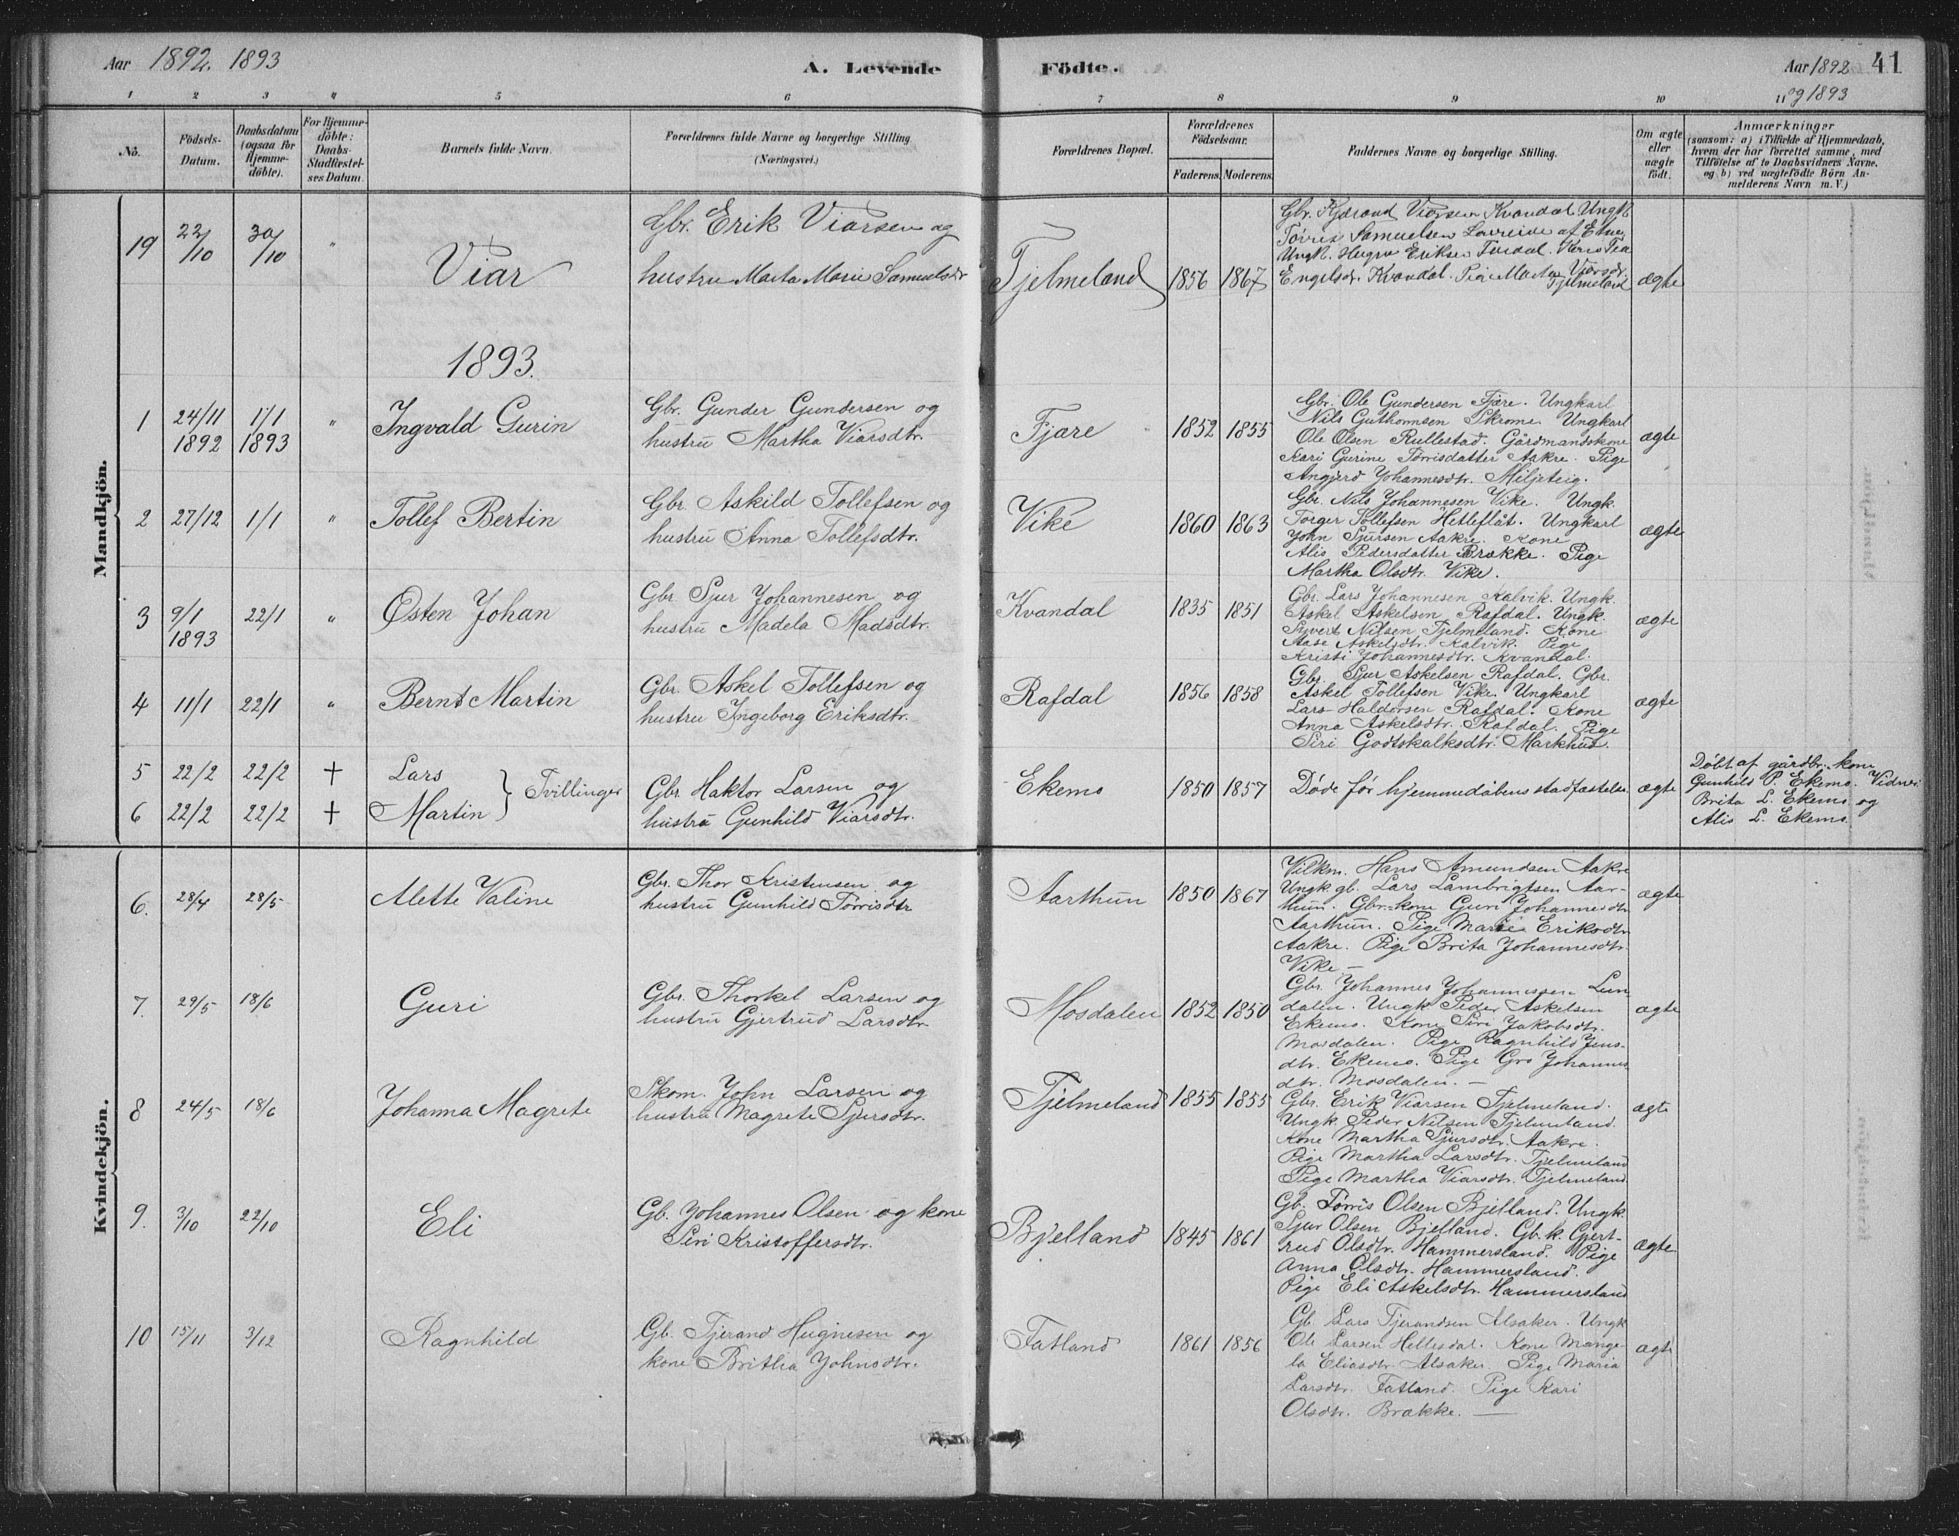 Aar 1892. 1893
A. Levende
Födte.
Aar 1892 41
og 1893
1 2 3 4 5 6 7 8 9 10 11
No.
Födsels-
Datum.
Daabsdatum
(ogsaa for
Hjemme-
döbte).
For Hjemme-
döbte:
Daabs-
Stadfæstel-
ses Datum.
Barnets fulde Navn.
Forældrenes fulde Navne og borgerlige Stilling.
(Næringsvei.)
Forældrenes Bopæl.
Forældrenes
Födselsaar.
Faderens. Moderens.
Faddernes Navne og borgerlige Stilling.
Om ægte
eller
uægte
födt.
Anmærkninger
(saasom: a) i Tilfælde af Hjemmedaab,
hvem der har forrettet samme, med
Tilföielse af to Daabsvidners Navne,
og b) ved uægtefödte Börn An-
melderens Navn m. V.)
Mandkjön.
19 22/10 30/10 "
Viar
Gbr. Erik Viarsen og
hustru Marta Marie Samuelsdr
Tjelmeland 1856 1867
Gbr. Kjærand Viarsen Kvandal Ungk
Tørris Samuelsen Lavreide af Etne,
Ungk. Eriksen
Engelsdr. Kvandal. Pige Marta Viarsdr.
Tjelmeland
ægte
1893.
1 24/11 1892 1/1 1893 "
Ingvald Gurin
Gbr. Gunder Gundersen og
hustru Martha Viarsdtr.
Fjære 1852 1855
Gbr. Ole Gundersen Fjære. Ungkarl
Nils Guthormsen Skromo. Ungkarl
Ole Olsen Rullestad. Gårdmandskone
Kari Gurine Tørrisdatter Aakre. Pige
Angjerd Johannesdtr. Miljeteig.
ægte
2 27/12 1/1 "
Tollef Bertin
Gbr. Askild Tollefsen og
hustru Anna Tollefsdtr.
Vike 1860 1863
Gbr. Nils Johannesen Vike. Ungk.
Torger Tollefsen Hetleflåt. Ungkarl
John Sjursen Aakre. Kone
Alis Pedersdatter Brække. Pige
Martha Olsdtr. Vike.
ægte
3 9/1 1893 22/1 "
Østen Johan
Gbr. Sjur Johannesen og
hustru Madela Madsdtr.
Kvandal 1835 1851
Gbr. Lars Johannesen Kalvik. Ungk.
Askel Askelsen Rafdal. Ungk.
Sivert Nilsen Tjelmeland. Kone
Aase Askelsdtr. Kalvik. Pige
Kristi Johannesdtr. Kvandal.
ægte
4 11/1 22/1 "
Bernt Martin
Gbr. Askel Tollefsen og
hustru Ingeborg Eriksdtr.
Rafdal 1856 1858
Gbr. Sjur Askelsen Rafdal. Gbr.
Askel Tollefsen Vike. Ungkarl
Lars Haldorsen Rafdal. Kone
Anna Askelsdtr. Rafdal. Pige
Siri Godtskalksdtr. Markhus.
ægte
5 22/2 22/2 † Lars
6 22/2 22/2 † Martin
} Tvillinger
Gbr. Haktor Larsen og
hustru Gunhild Viarsdtr.
Ekemo 1850 1857
Døde før hjemmedåbens stadfæstelse
ægte
Døbt af gårdbr. kone
Gunhild P. Ekemo. Vidner
Brita L. Ekemo og
Alis L. Ekemo.
Kvindekjön.
6. 28/4 28/5
Alette Valine
Gbr. Thor Kristensen og
hustru Gunhild Tørrisdtr
Aarthun 1850 1867
Vilkm. Hans Amundsen Aakre
Ungk. gb. Lars Lambrigtsen Aar-
thun. Gbr. kone Guri Johannesdtr.
Aarthun. Pige Marie Eriksdtr.
Aakre. Pige Brita Johannesdtr.
Vike —
ægte
7. 29/5 18/6
Guri
Gbr. Thorkel Larsen og
hustru Gjertrud Larsdtr.
Mosdalen 1852 1850
Gbr. Johannes Johannessen Lun-
dalen. Ungk. Peder Askelsen
Ekemo. Kone Siri Jakobsdtr.
Mosdalen. Pige Ragnhild Jens-
dtr. Ekemo. Pige Gro Johannes
dtr. Mosdalen. —
ægte
8 24/5 18/6
Johanna Magrete
Skom. John Larsen og
hustru Magrete Sjursdtr.
Tjelmeland 1855 1855
Gbr. Erik Viarsen Tjelmeland.
Ungk. Peder Nilsen Tjelmeland.
Kone Martha Sjursdtr. Aakre.
Pige Martha Larsdtr. Tjelmeland
Pige Martha Viarsdtr. Tjelmeland
ægte
9. 3/10 22/10
Eli
Gb. Johannes Olsen og kone
Siri Kristoffersdtr.
Bjelland 1845 1861
Gb. Tørris Olsen Bjelland. Ungk
Sjur Olsen Bjelland. Gb. k. Gjert-
rud Olsdtr. Hammersland. Pige
Anna Olsdtr. Hammersland.
Pige Eli Askelsdtr. Hammersland
ægte
10 15/11 3/12
Ragnhild
Gb. Tjerand Hugnesen og
kone Britha Johnsdtr.
Fatland 1861 1856
Gb. Lars Tjerandsen Alsaker. Ungk
Ole Larsen Hellesdal. Kone Mange-
la Eliasdtr. Alsaker. Pige Maria
Larsdtr. Fatland. Pige Kari
Olsdtr. Brække. —
ægte